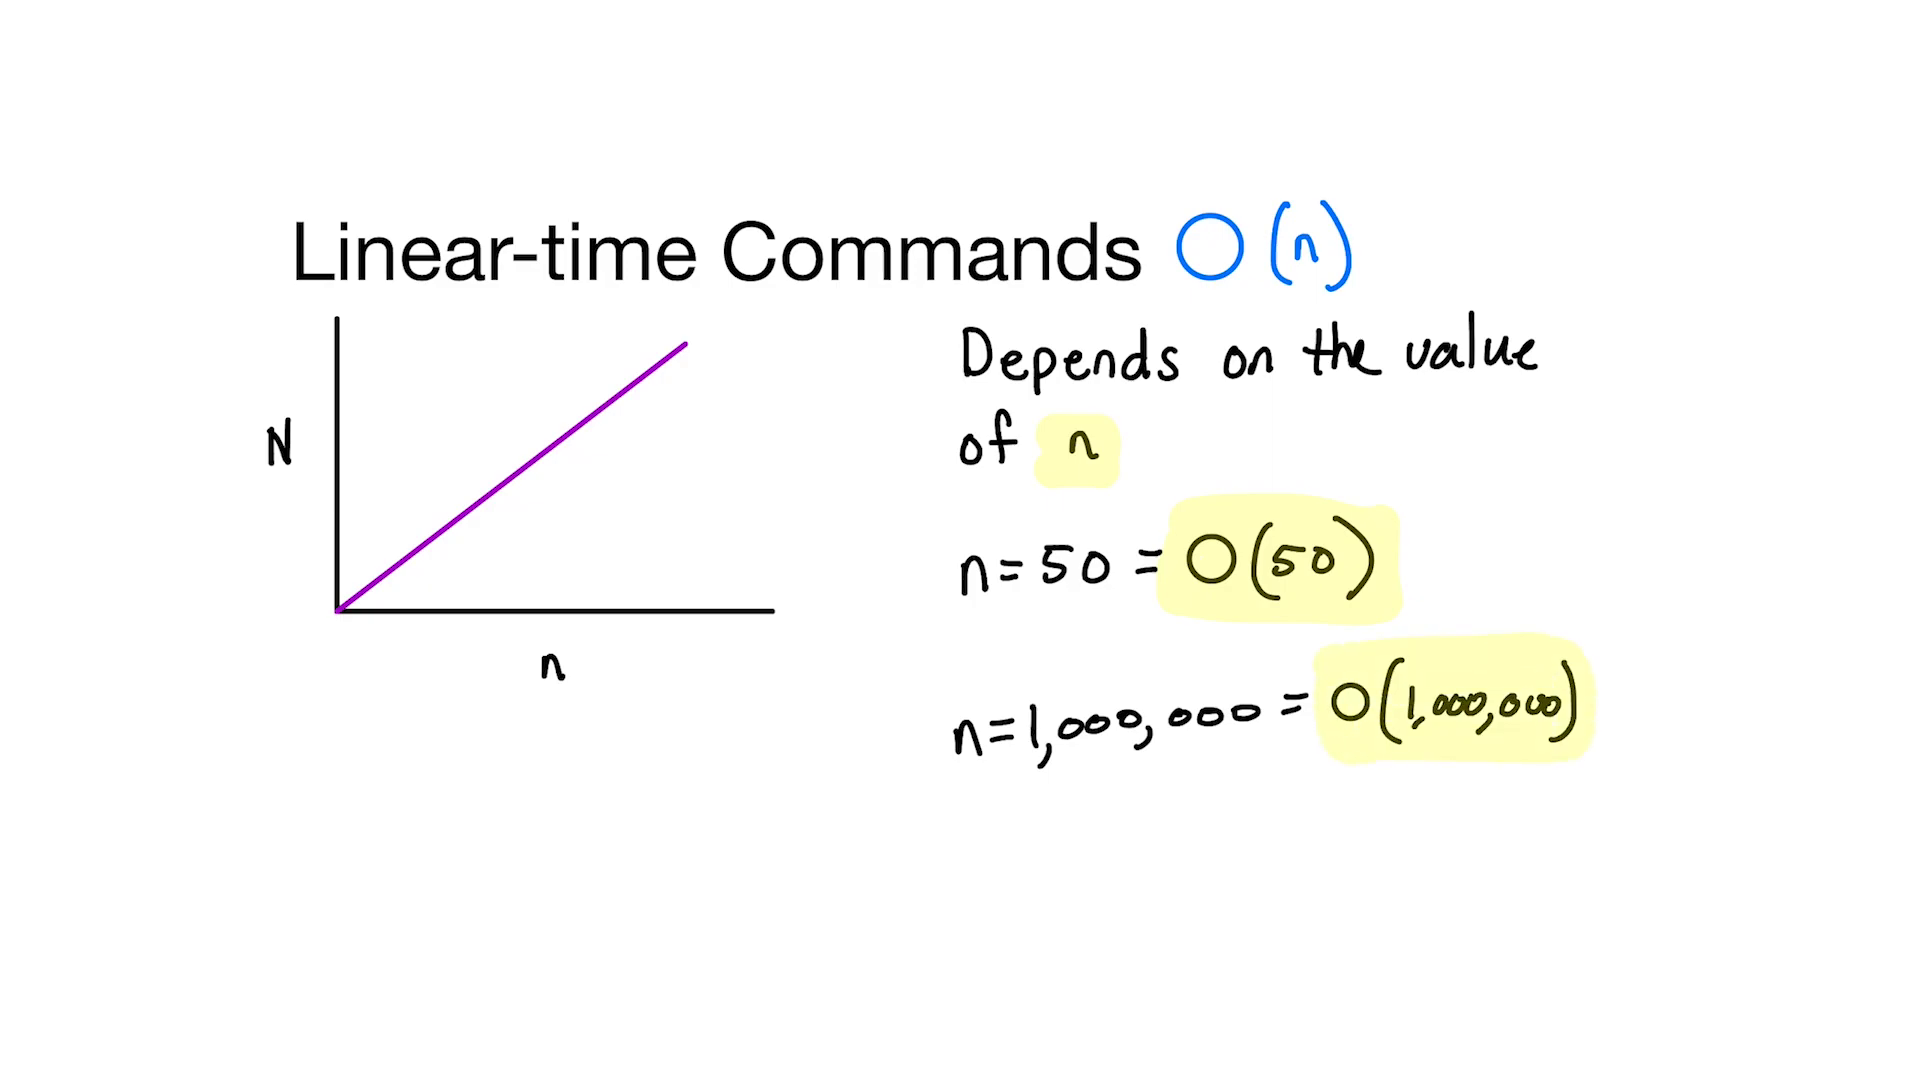 Linear-time Commands O(n)
N
n
Depends on the value
of n
n=50 = O(50)
n=1,000,000 = O(1,000,000)